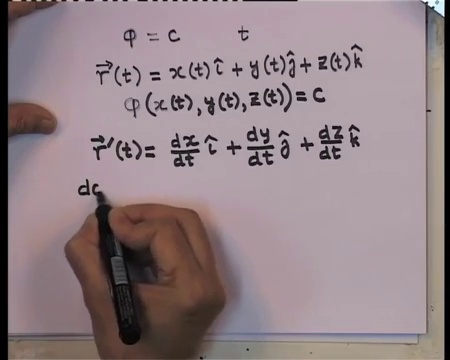 φ = c t
r⃗(t) = x(t) î + y(t) ĵ + z(t) k̂
φ(x(t), y(t), z(t)) = c
r⃗'(t) = dx/dt î + dy/dt ĵ + dz/dt k̂
dc